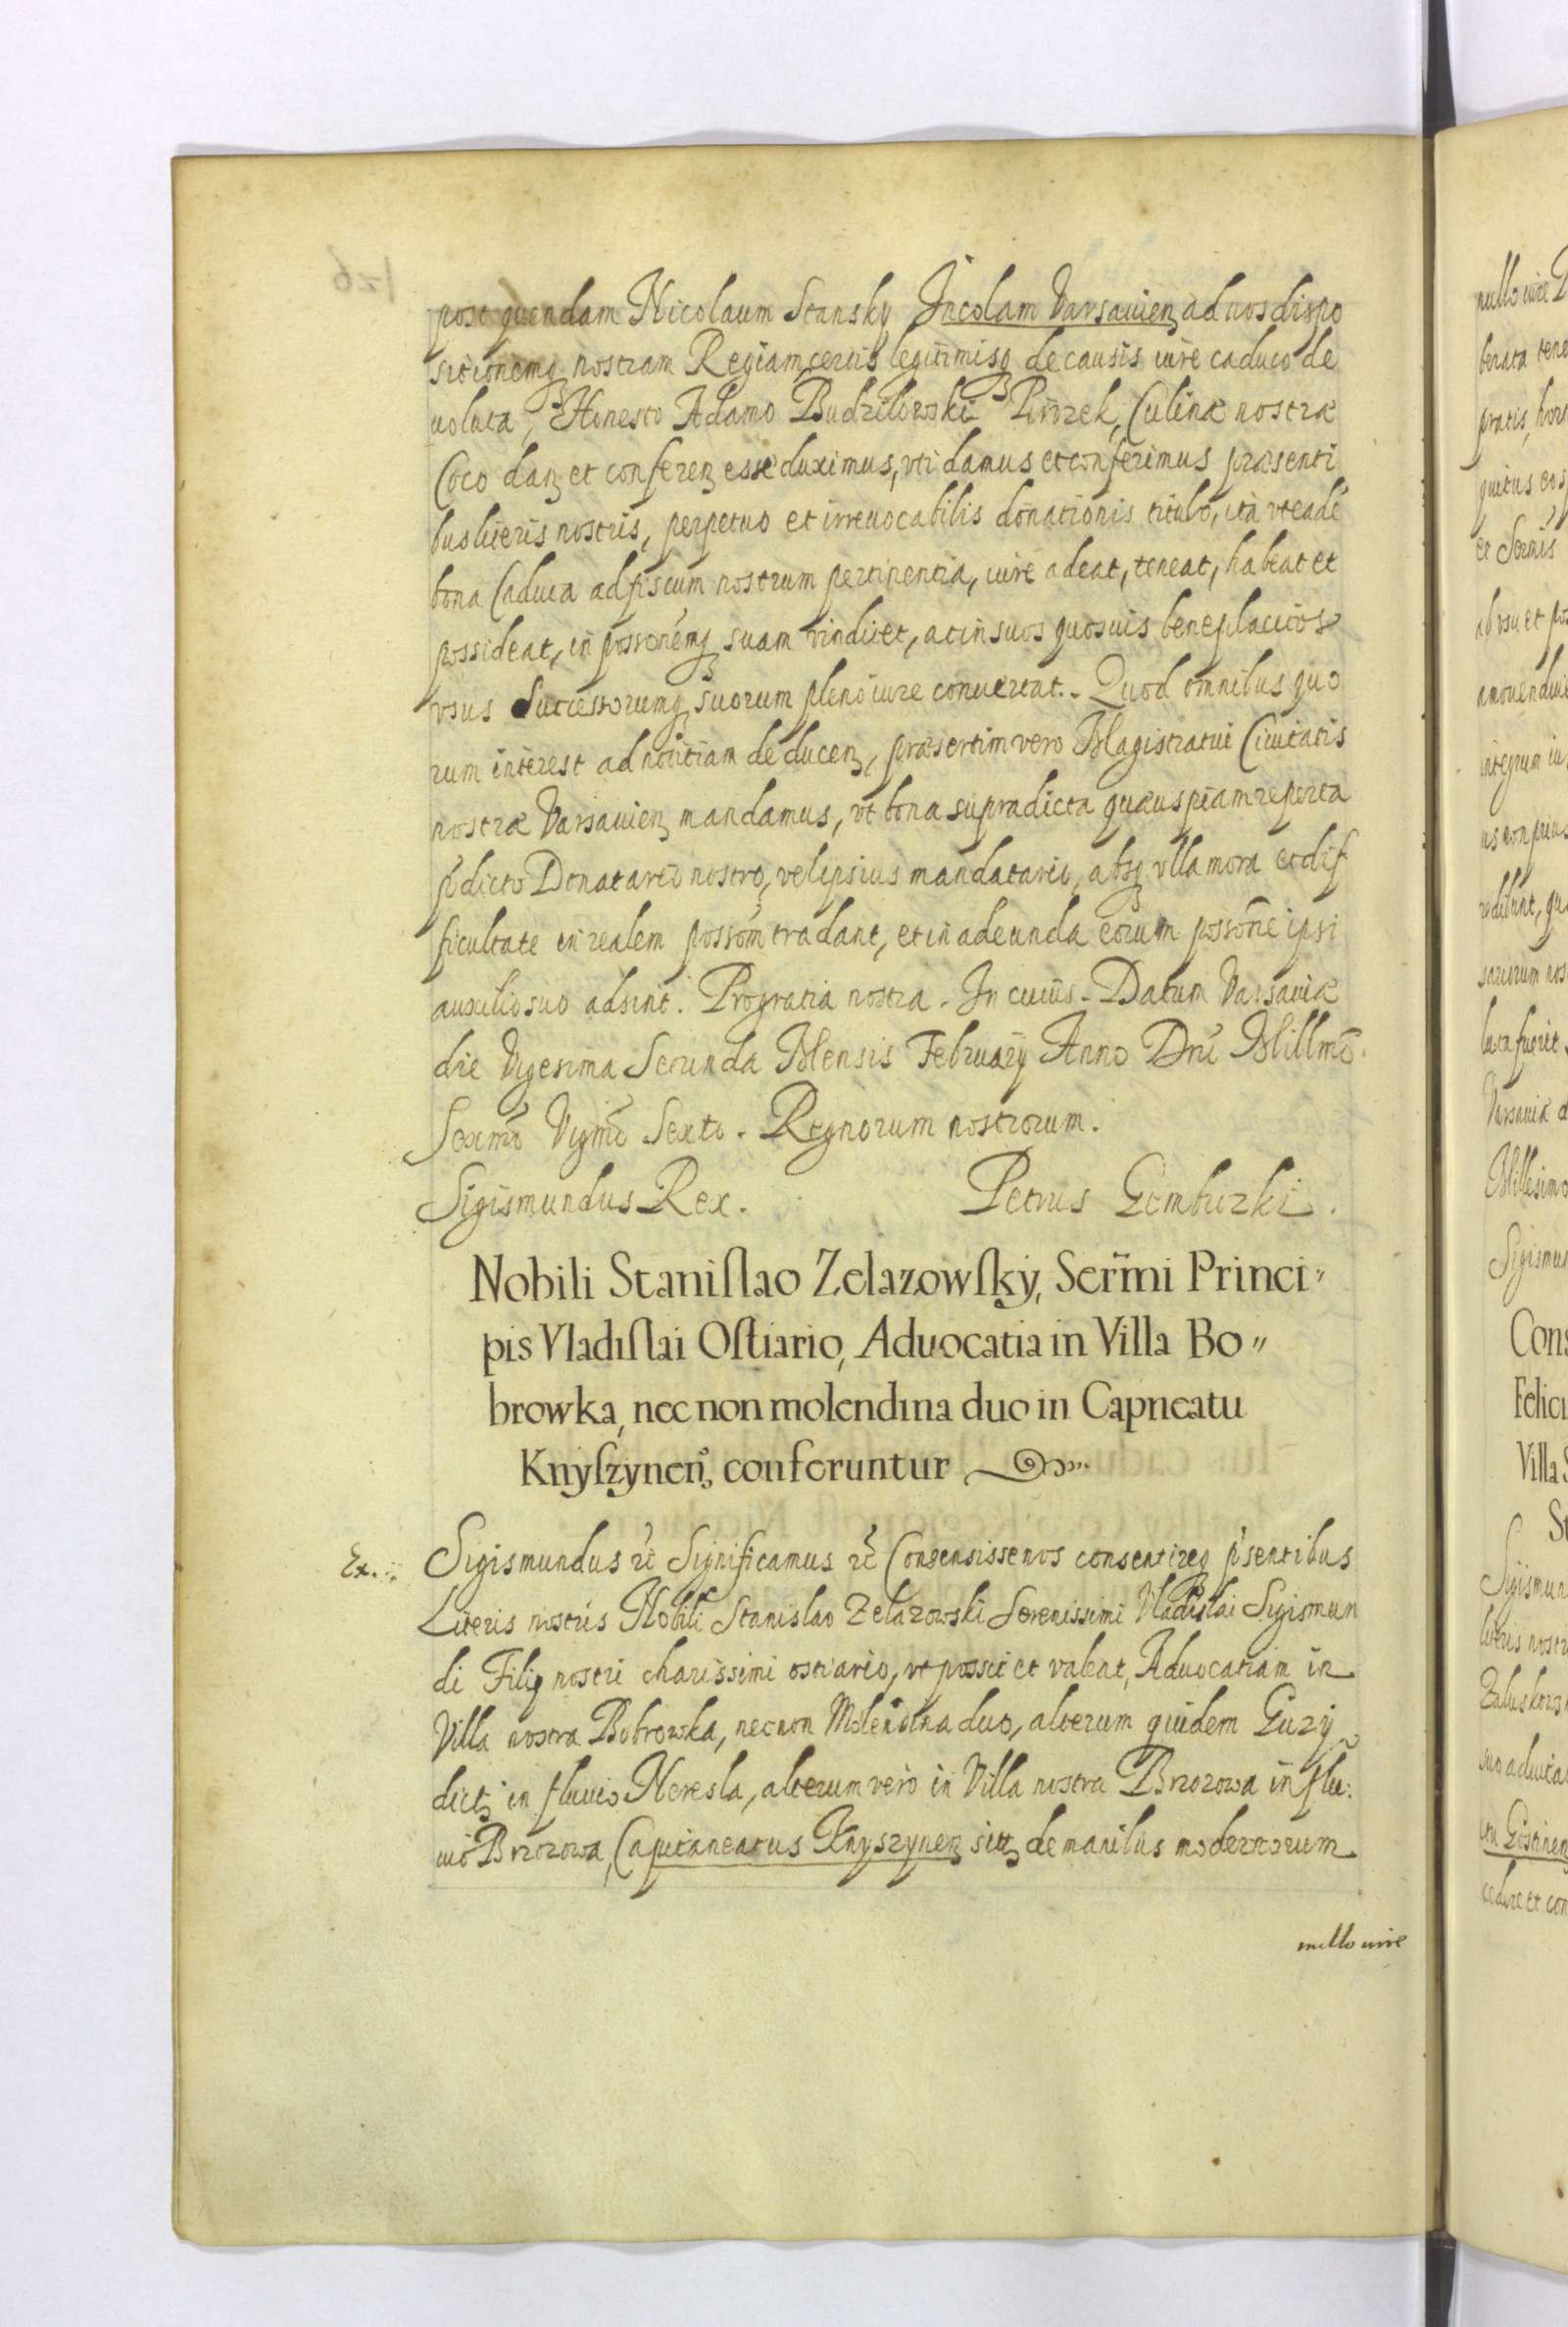 post quendam Nicolaum Stansky Incolam Varsauien₃ ad nos dispo
sitionemq₃ nostram Regiam certis legitimisq₃ de causis iure caduco de
uoluta, Honesto Adamo Budzilowski Piwzek, Culinæ nostræ
Coco dan₃ et conferen₃ esse duximus, vti damus et conferimus præsenti
bus literis nostris, perpetuo et irreuocabilis donationis titulo, ita vt eadē
bona Caduca ad fiscum nostrum pertinentia, iure adeat, teneat, habeat et
possideat, in possonēmq₃ suam vindicet, ac in suos quosuis beneplacitos
vsus Successorumq₃ suorum pleno iure conuertat. Quod omnibus quo
rum interest ad notitiam deducen₃, præsertim vero Magistratui Ciuitatis
nostræ Varsauien₃ mandamus, vt bona supradicta quæuspiam reperta
p̄dicto Donatario nostro, vel ipsius mandatario, absq₃ vlla mora et dif
ficultate in realem possom̄ tradant, et in adeunda eorum possōne ipsi
auxilio suo adsint. Pro gratia nostra. In cuius. Datum Varsauiæ
die Vigesima Secunda Mensis Februarÿ Anno Dn̄i Millmō.
Sexmō Vigmō Sexto. Regnorum nostrorum.
Sigismundus Rex. Petrus Gembiczki.
Nobili Staniſlao Zelazowſkÿ, Ser̄mi Princi〃
pis Vladiſlai Oſtiario, Aduocatia in Villa Bo〃
browka, nec non molendina duo in Capneatu
Knyſzynen̄, conferuntur
Ex. Sigismundus ꝛc̄ Significamus ꝛc̄ Consensisse nos consentireq p̄sentibus
Literis nostris Nobili Stanislao Zelazowski Serenissimi Vladislai Sigismun
di Filÿ nostri charissimi ostiario, vt possit et valeat, Aduocatiam in
Villa nostra Bobrowka, necnon Molendina duo, alterum quidem Guzÿ
dict₃ in fluuio Neresla, alterum vero in Villa nostra Brzozowa in flu:
uio Brzozowa, Capitaneatus Knyszynen₃ sitt₃ de manibus modernorum
nullo iure